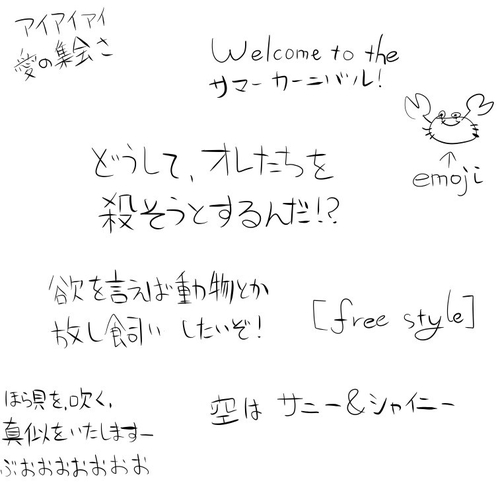 アイアイアイ
愛の集会さ
Welcome to the
サマーカーニバル!
emoji
どうして、オレたちを
殺そうとするんだ!?
欲を言えば動物とか
放し飼い したいぞ!
[free style]
ほら貝を,吹く,
真似をいたしますー
ぶおおおおおおお
空は サニー&シャイニー